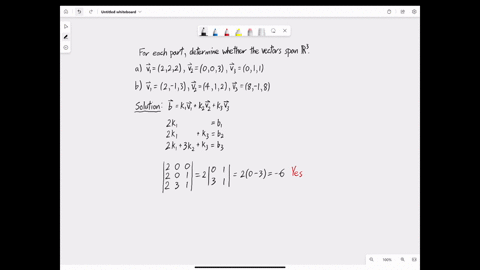 Untitled whiteboard
For each part, determine whether the vectors span ℝ³.
a) v⃗₁ = (2,2,2), v⃗₂ = (0,0,3), v⃗₃ = (0,1,1)
b) v⃗₁ = (2,-1,3), v⃗₂ = (4,1,2), v⃗₃ = (8,-1,8)
Solution: b⃗ = k₁v⃗₁ + k₂v⃗₂ + k₃v⃗₃
2k₁ = b₁
2k₁ + k₃ = b₂
2k₁ + 3k₂ + k₃ = b₃
|2 0 0; 2 0 1; 2 3 1| = 2 |0 1; 3 1| = 2(0-3) = -6 Yes
100%